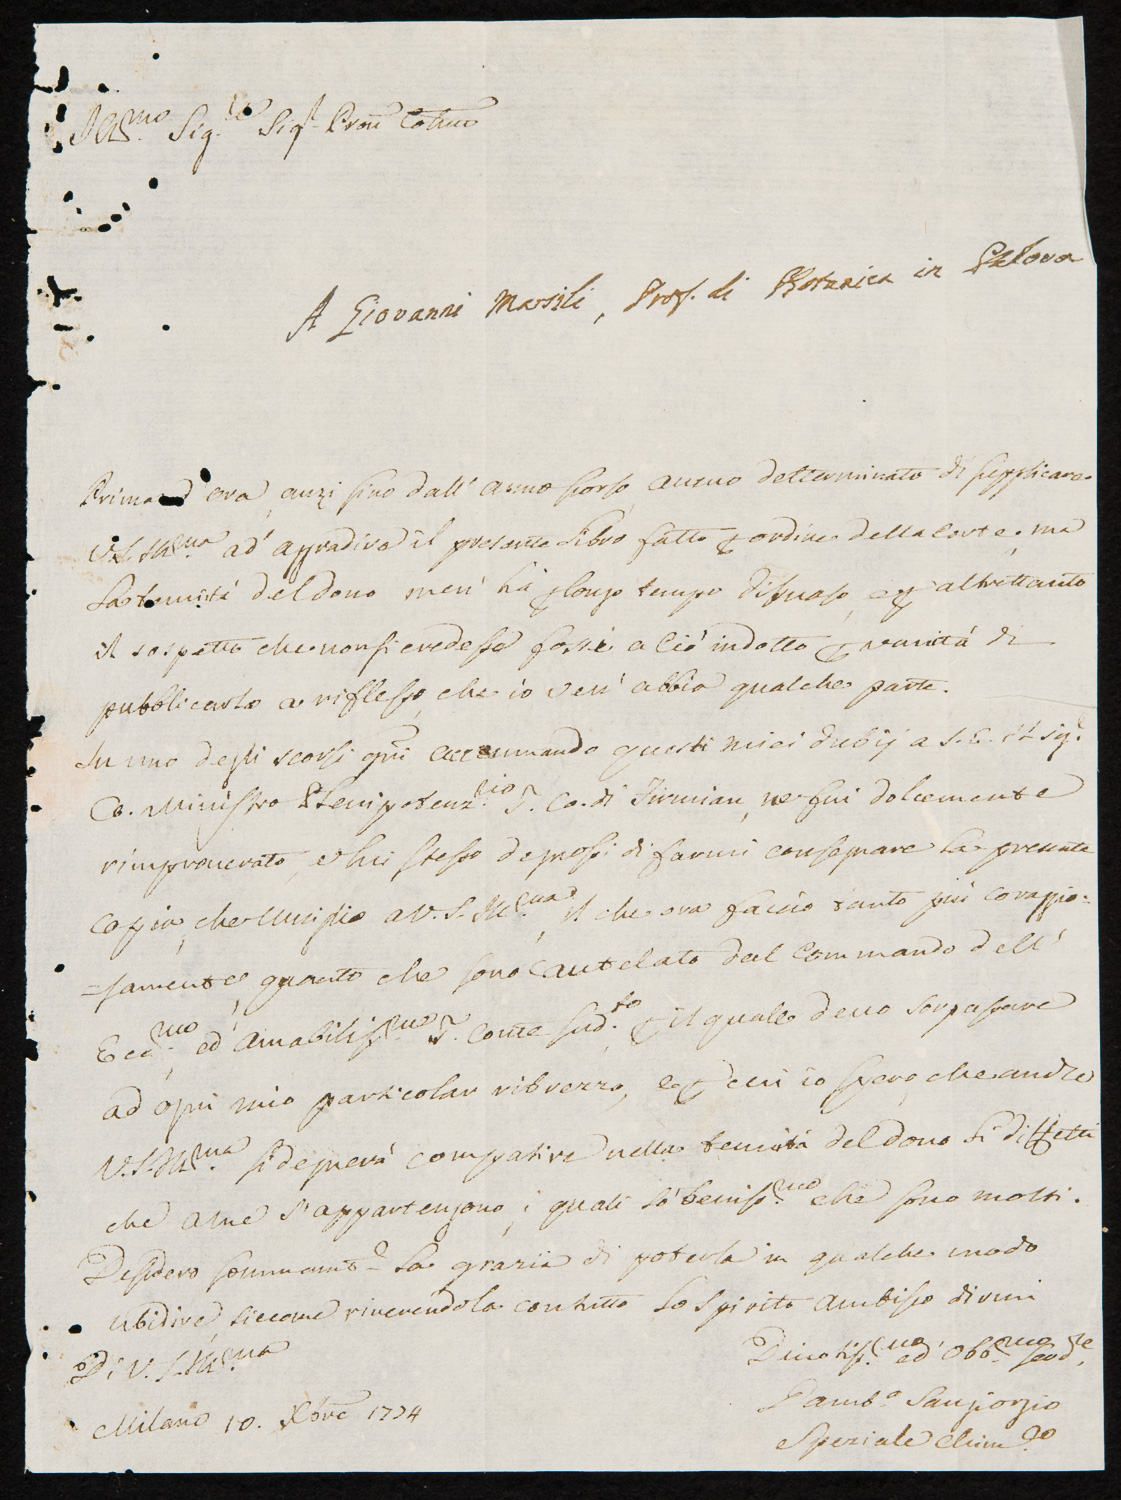 Ill.mo Sig.re Sig.r Pron Colmo
A Giovanni Marsili, Prof. di Botanica in Padova
Prima d'ora, anzi sino dall'anno scorso aveuo determinato di supplicare
V.S. Ill.ma ad' aggradire il presente Libro fatto ordine della Corte; ma
la tenuità del dono men' hà longo tempo disuaso, e altrettanto
il sospetto che non si credesse fosse a ciò indotto vanità di
pubblicarlo a riflesso, che io ven' abbia qualche parte.
In uno degli scorsi gni accennando questi miei dubij a S.E. il Sig.r
Co. Ministro Plenipotenz.rio Co. di Firmian, ne fui dolcemente
rimproverato, e lui stesso degnossi di farmi consegnare la presente
copia, che umilio a V.S. Ill.ma, il che ora faccio tanto più coraggio=
=samente, quanto che sono cautelato dal Commando dell'
Ecc.mo, ed' Amabiliss.mo Conte sud.to, il quale deuo sorpassare
ad ogni mio particolar ribrezzo, e cui io spero, che anche
V.S. Ill.ma si degnerà compatire nella tenuità del dono li diffetti
che a me s'appartengono, i quali sò beniss.mo che sono molti.
Desidero sommamte la grazia di poterla in qualche modo
ubidire, siccome riverendola con tutto lo spirito ambisco dirmi
Di V. S. Ill.ma
Diuotiss.mo ed' Obb.mo Serd.re
Milano 10. Xbre 1774
Sangiorgio
Speziale Chim.co